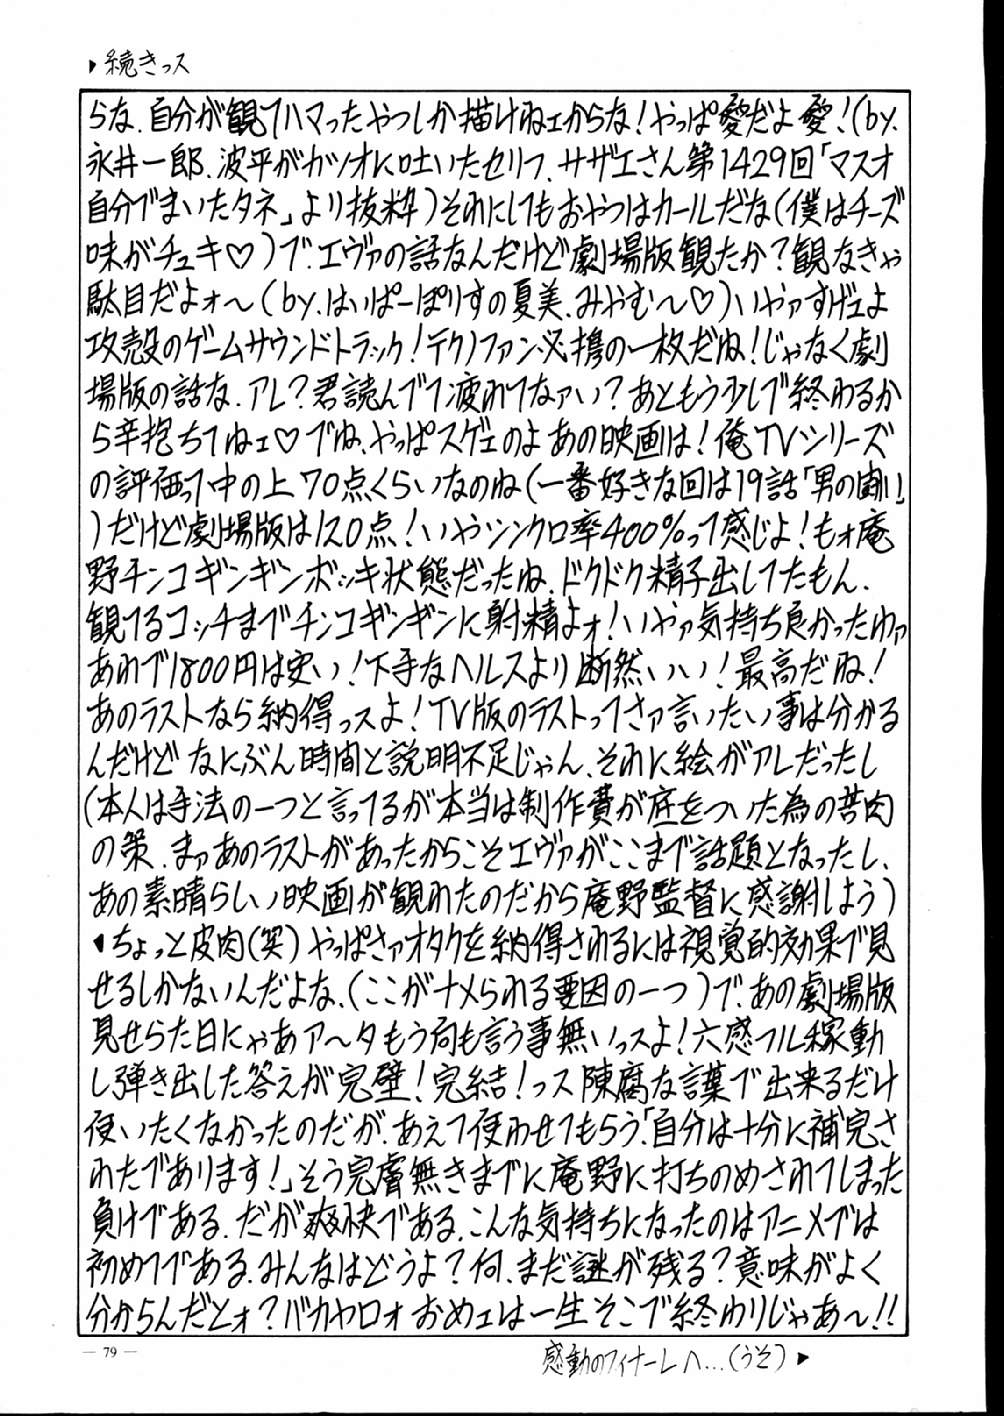 ▶続きっス
らな、自分が観てハマったやつしか描けねェからな！やっぱ愛だよ愛！（by、
永井一郎、波平がカツオに吐いたセリフ、サザエさん第1429回「マスオ
自分でまいたタネ」より抜粋）それにしてもおやつはカールだな（僕はチーズ
味がチュキ♡）で、エヴァの話なんだけど劇場版観たか？観なきゃ
駄目だよォ〜（by、はいぱーぽりすの夏美、みやむ〜♡）いやァすげェよ
攻殻のゲームサウンドトラック！テクノファン必携の一枚だね！じゃなく劇
場版の話な、アレ？君読んでて疲れてなァい？あともう少しで終わるか
ら辛抱ちてねェ♡でね、やっぱスゲェのよあの映画は！俺TVシリーズ
の評価って中の上70点くらいなのね（一番好きな回は19話「男の闘い」
）だけど劇場版は120点！いやシンクロ率400%って感じよ！もォ庵
野チンコギンギンボッキ状態だったね、ドクドク精子出してたもん、
観てるコッチまでチンコギンギンに射精よォ！いやァ気持ち良かったわァ
あれで1800円は安い！下手なヘルスより断然いい！最高だね！
あのラストなら納得っスよ！TV版のラストってさァ言いたい事は分かる
んだけどなにぶん時間と説明不足じゃん、それに絵がアレだったし
（本人は手法の一つと言ってるが本当は制作費が底をついた為の苦肉
の策、まァあのラストがあったからこそエヴァがここまで話題となったし、
あの素晴らしい映画が観れたのだから庵野監督に感謝しよう）
♥ちょっと皮肉（笑）やっぱさァオタクを納得されるには視覚的効果で見
せるしかないんだよな、（ここがナメられる要因の一つ）で、あの劇場版
見せらた日にゃあア〜タもう何も言う事無いっスよ！六感フル稼動
し弾き出した答えが完璧！完結！っス陳腐な言葉で出来るだけ
使いたくなかったのだが、あえて使わせてもらう、「自分は十分に補完さ
れたであります！」そう完膚無きまでに庵野に打ちのめされてしまった
負けである、だが爽快である、こんな気持ちになったのはアニメでは
初めてである、みんなはどうよ？何、まだ謎が残る？意味がよく
分からんだとォ？バカヤロォおめェは一生そこで終わりじゃあ〜！！
— 79 —
感動のフィナーレへ…（うそ）▶